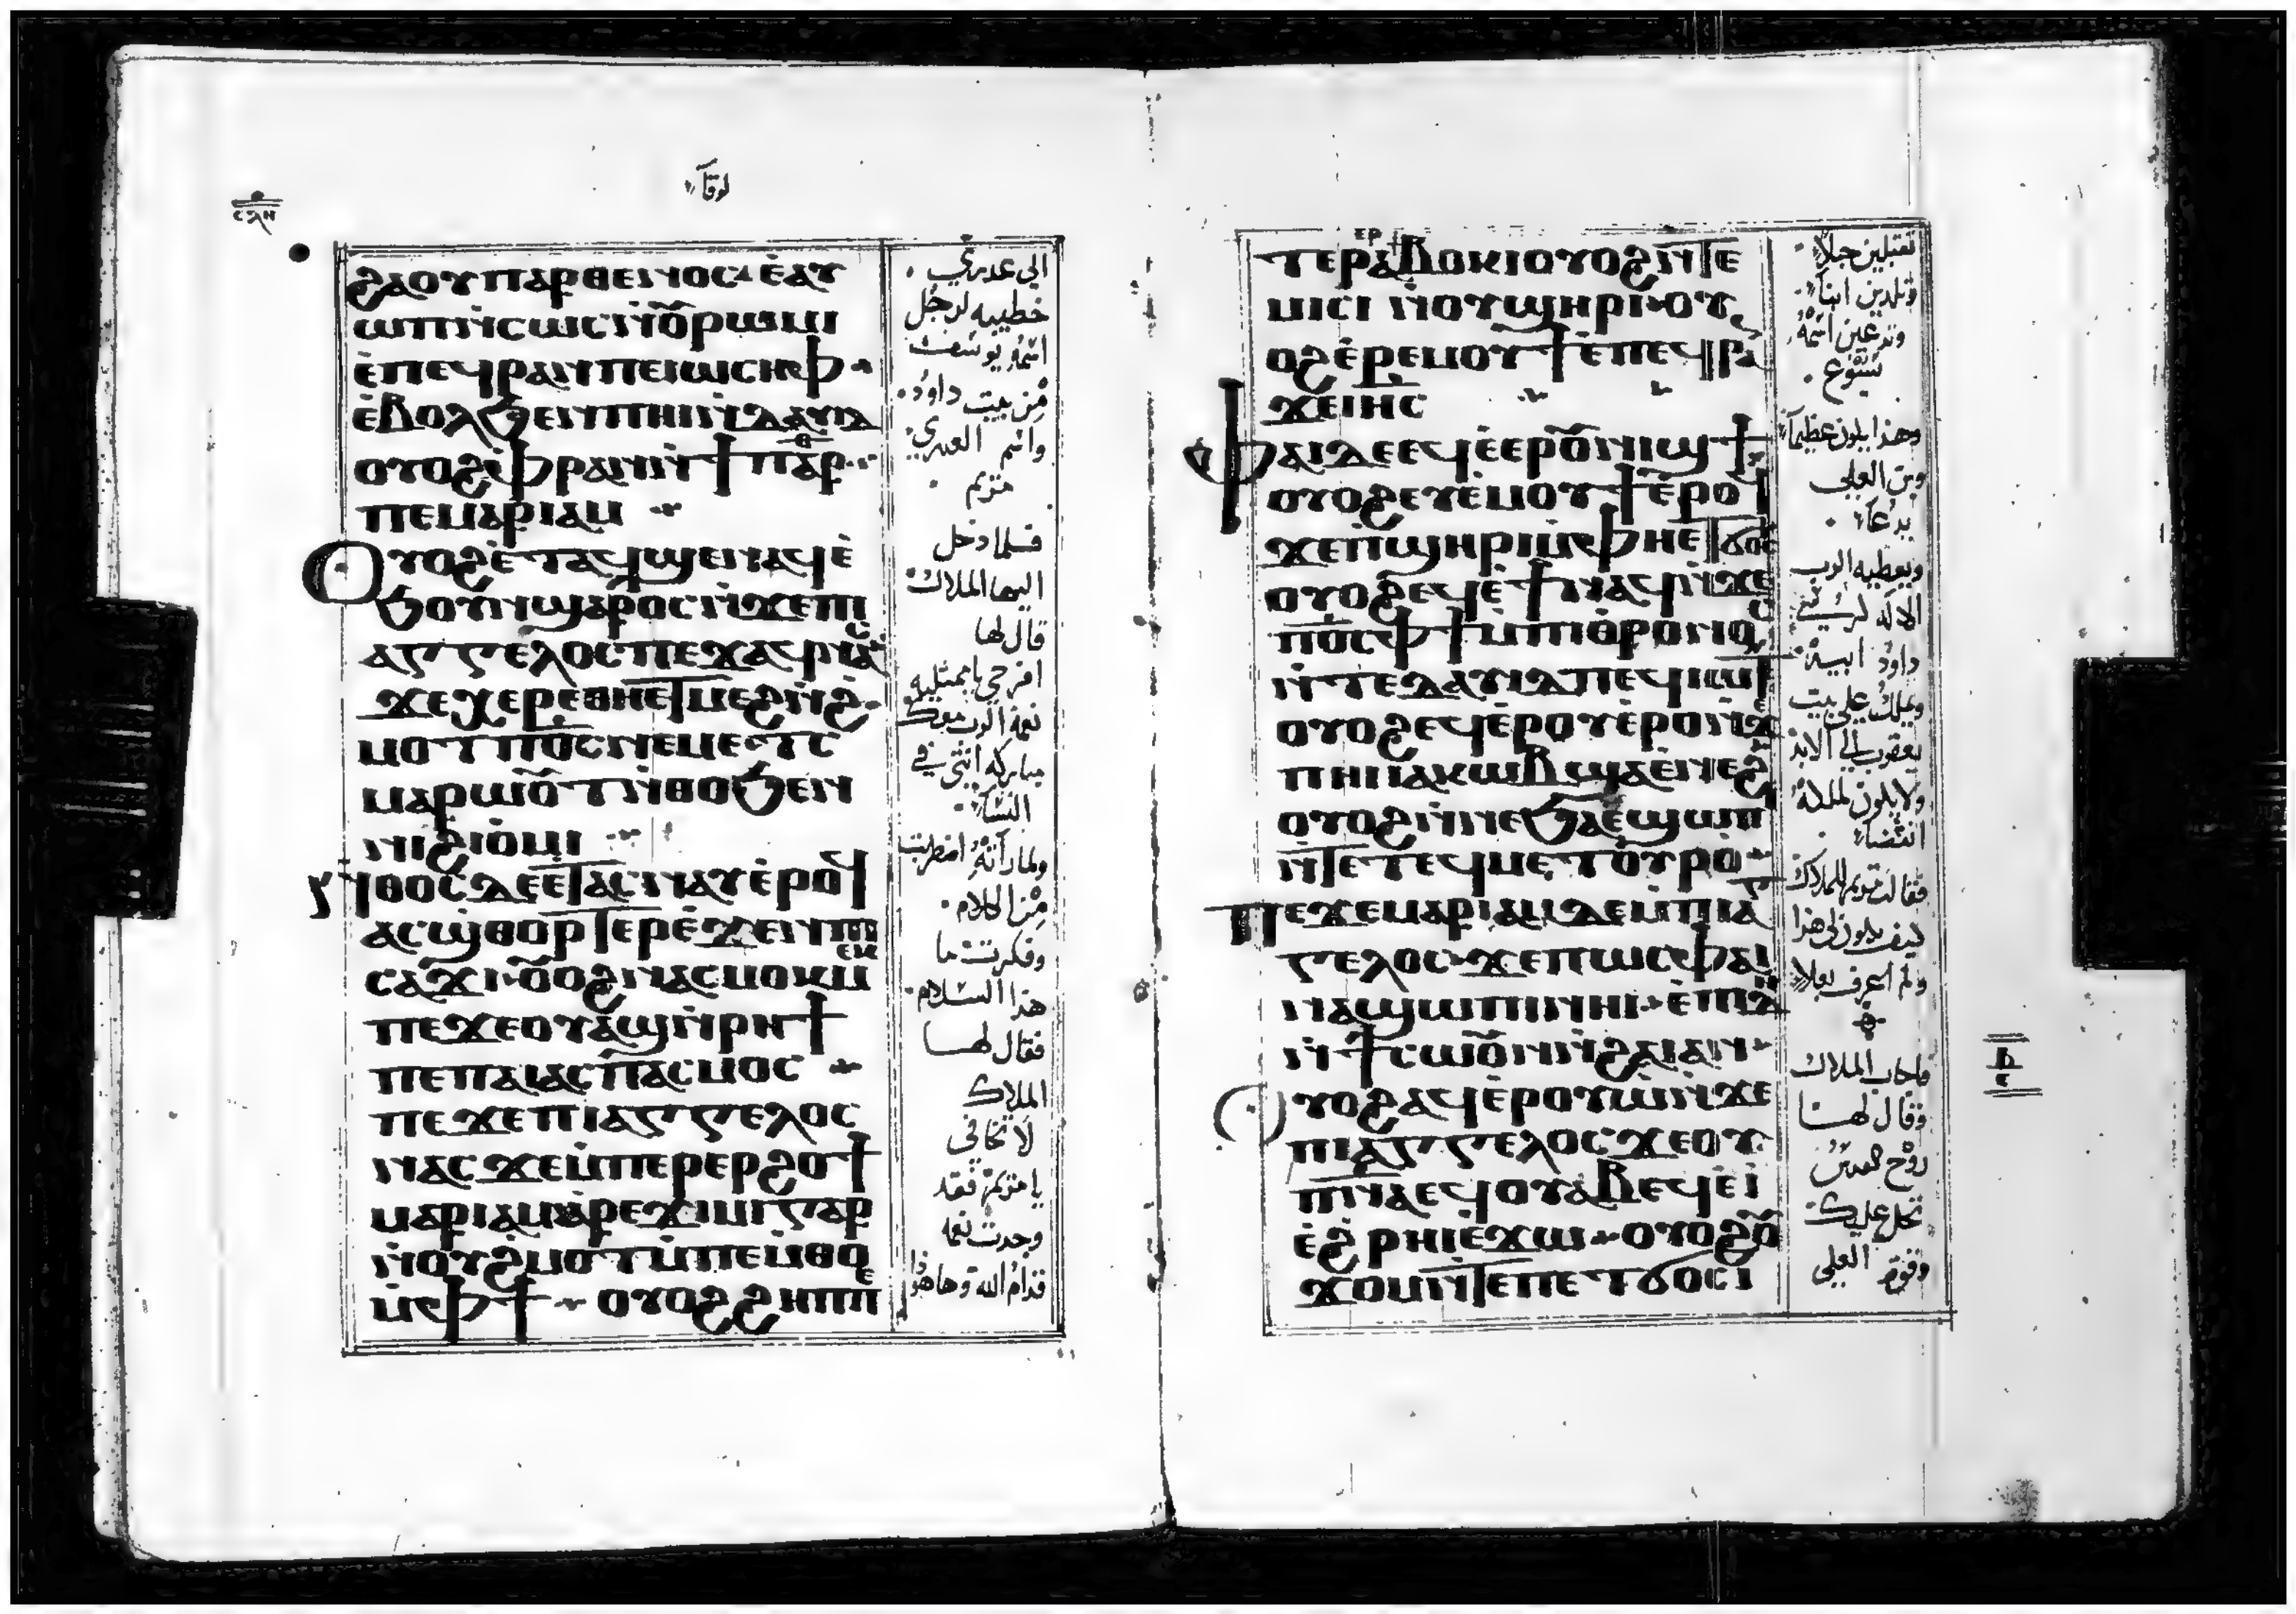 لوقا
ⲥⲗⲏ
ϩⲁⲟⲩⲡⲁⲣⲑⲉⲛⲟⲥ ⲉ̀ⲁⲩ
ⲱⲡⲛ̀ⲥⲱⲥⲛ̀ⲟ̅ⲣⲱⲙⲓ
ⲉ̀ⲡⲉϥⲣⲁⲛⲡⲉⲓⲱⲥⲏⲫ
ⲉ̀ⲃⲟⲗϧⲉⲛⲡⲏⲓⲛ̀ⲇⲁⲩⲇ
ⲟⲩⲟϩⲫ̀ⲣⲁⲛⲛ̀ϯⲡⲁⲣⲑ
ⲡⲉⲙⲁⲣⲓⲁⲙ
ⲟⲩⲟϩⲉ̀ⲧⲁϥϣⲉⲛⲁϥⲉ̀
ϧⲟⲩⲛϣⲁⲣⲟⲥⲛ̀ϫⲉⲡⲓ
ⲁⲅⲅⲉⲗⲟⲥⲡⲉϫⲁϥⲛⲁⲥ
ϫⲉⲭⲉⲣⲉⲑⲏⲉⲧⲙⲉϩⲛ̀ϩ
ⲙⲟⲧⲡⲟ̅ⲥⲛⲉⲙⲉ ⲧⲥ
ⲙⲁⲣⲱⲟ̅ⲧⲛ̀ⲑⲟϧⲉⲛ
ⲛⲓϩⲓⲟ̀ⲙⲓ
ⲛ̀ⲑⲟⲥⲇⲉⲉⲧⲁⲥⲛⲁⲩⲉ̀ⲣⲟϥ
ⲁⲥϣ̀ⲑⲟⲣⲧⲉⲣⲉ̀ϫⲉⲛⲡⲓ
ⲥⲁϫⲓ ⲟ̅ⲟϩⲛⲁⲥⲙⲟⲕⲙⲉⲕ
ⲡⲉϫⲉⲟⲩⲁϣⲛ̀ⲣⲏϯ
ⲡⲉⲡⲁⲓⲁⲥⲡⲁⲥⲙⲟⲥ
ⲡⲉϫⲉⲡⲓⲁⲅⲅⲉⲗⲟⲥ
ⲛⲁⲥϫⲉⲙ̀ⲡⲉⲣⲉⲣϩⲟϯ
ⲙⲁⲣⲓⲁⲙⲁ̀ⲣⲉϫⲓⲙⲓⲅⲁⲣ
ⲛ̀ⲟⲩϩⲙⲟⲧⲙ̀ⲡⲉⲙ̀ⲑⲟ
ⲙ̀ⲫϯ ⲟⲩⲟϩϩⲏⲡⲡⲉ
الى عدري
خطيبه لرجل
اسمه يوسف
من بيت داود
واسم العدري
مريم
فلما دخل
اليها الملاك
قال لها
افرحي يا ممتليه
نعمة الرب معك
مباركه انتي في
النسا
ولما رآته اضطربت
من الكلام
وفكرت ما
هذا السلام
فقال لهـا
الملاك
لا تخافي
يا مريم فقد
وجدت نعمه
قدام الله وها هوذا
ⲧⲉⲣⲁⲃⲟⲕⲓⲟⲩⲟϩⲛ̀ⲧⲉ
ⲙⲓⲥⲓ ⲛ̀ⲟⲩϣⲏⲣⲓ ⲟⲩ
ⲟϩⲉ̀ⲣⲉⲙⲟⲩϯⲉ̀ⲡⲉϥⲣⲁ
ϫⲉⲓⲏⲥ
ⲫⲁⲓⲇⲉⲉϥⲉ̀ⲉⲣⲟ̅ⲛⲓϣϯ
ⲟⲩⲟϩⲉⲩⲉ̀ⲙⲟⲩϯⲉ̀ⲣⲟϥ
ϫⲉⲡ̀ϣⲏⲣⲓⲙ̀ⲫⲏⲉⲧϭⲟⲥ
ⲟⲩⲟϩⲉϥⲉ̀ϯⲛⲁϥⲛ̀ϫⲉ
ⲡⲟ̅ⲥⲫϯⲙ̀ⲡⲓⲑⲣⲟⲛⲟⲥ
ⲛ̀ⲧⲉⲇⲁⲩⲓⲇⲡⲉϥⲓⲱⲧ
ⲟⲩⲟϩⲉϥⲉ̀ⲣⲟⲩⲣⲟ ⲉ̀ϫ
ⲡⲏⲓⲓⲁⲕⲱⲃϣⲁⲉ̀ⲛⲉϩ
ⲟⲩⲟϩⲛ̀ⲛⲉϧⲁⲉ̀ϣⲱⲡ
ⲛ̀ⲧⲉⲧⲉϥⲙⲉⲧⲟ̀ⲩⲣⲟ
ⲡⲉϫⲉⲙⲁⲣⲓⲁⲙⲇⲉⲙ̀ⲡⲓⲁⲅ
ⲅⲉⲗⲟⲥ ϫⲉⲡⲱⲥⲫⲁⲓ
ⲛⲁϣⲱⲡⲓⲛⲏⲓ ⲉ̀ⲡⲓⲇⲏ
ⲛ̀ϯⲥⲱⲟ̅ⲛⲛ̀ϩⲁⲓⲁⲛ
ⲟⲩⲟϩⲁϥⲉ̀ⲣⲟⲩⲱ̀ⲛ̀ϫⲉ
ⲡⲓⲁⲅⲅⲉⲗⲟⲥϫⲉⲟⲩ
ⲡⲛⲁⲉϥⲟⲩⲁⲃⲉϥⲉ̀ⲓ̀
ⲉ̀ϩ̀ⲣⲏⲓⲉ̀ϫⲱ ⲟⲩⲟϩⲟ̅
ϫⲟⲙⲛ̀ⲧⲉⲡⲉⲧϭⲟⲥⲓ
تقبلين حبلا
وتلدين ابنا
وتدعين اسمه
يسوع
وهذا يكون عظيما
وبن العلي
يدعا
ويعطيه الرب
الاله كرسي
داود ابيه
ويملك علي بيت
يعقوب الي الابد
ولا يكون لملكه
انقضا
فقالت مريم للملاك
كيف يكون لي هذا
ولم اعرف بعلا
فاجاب الملاك
وقال لهـا
روح القدس
تحل عليك
وقوة العلي